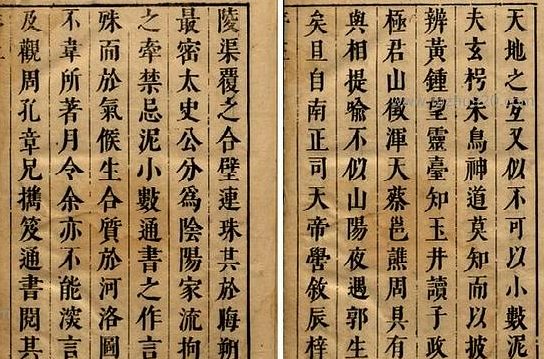 天地之又似不可以小數泥
夫玄枵朱鳥神道莫知而以披
辨黃鍾望靈臺知玉井讀子政
極君山徵渾天蔡邕譙周具有
與相提喻不似山陽夜遇郭生
矣且自南正司天帝嚳敘辰梓
陵渠覆之合璧連珠其於晦朔
最密太史公分爲陰陽家流拘
之牽禁忌泥小數通書之作言
殊而於氣候生合質於河洛圖
不韋所著月令余亦不能言
及觀周孔章兄攜笈通書閱其